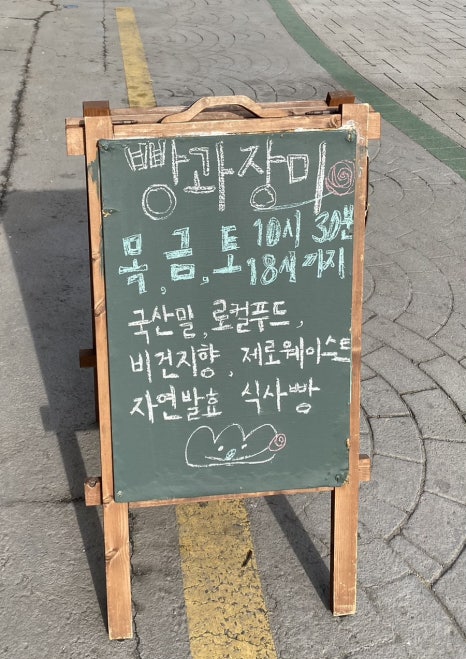 빵과장미
목,금,토 10시 30분
18시까지
국산밀,로컬푸드,
비건지향, 제로웨이스트
자연발효 식사빵